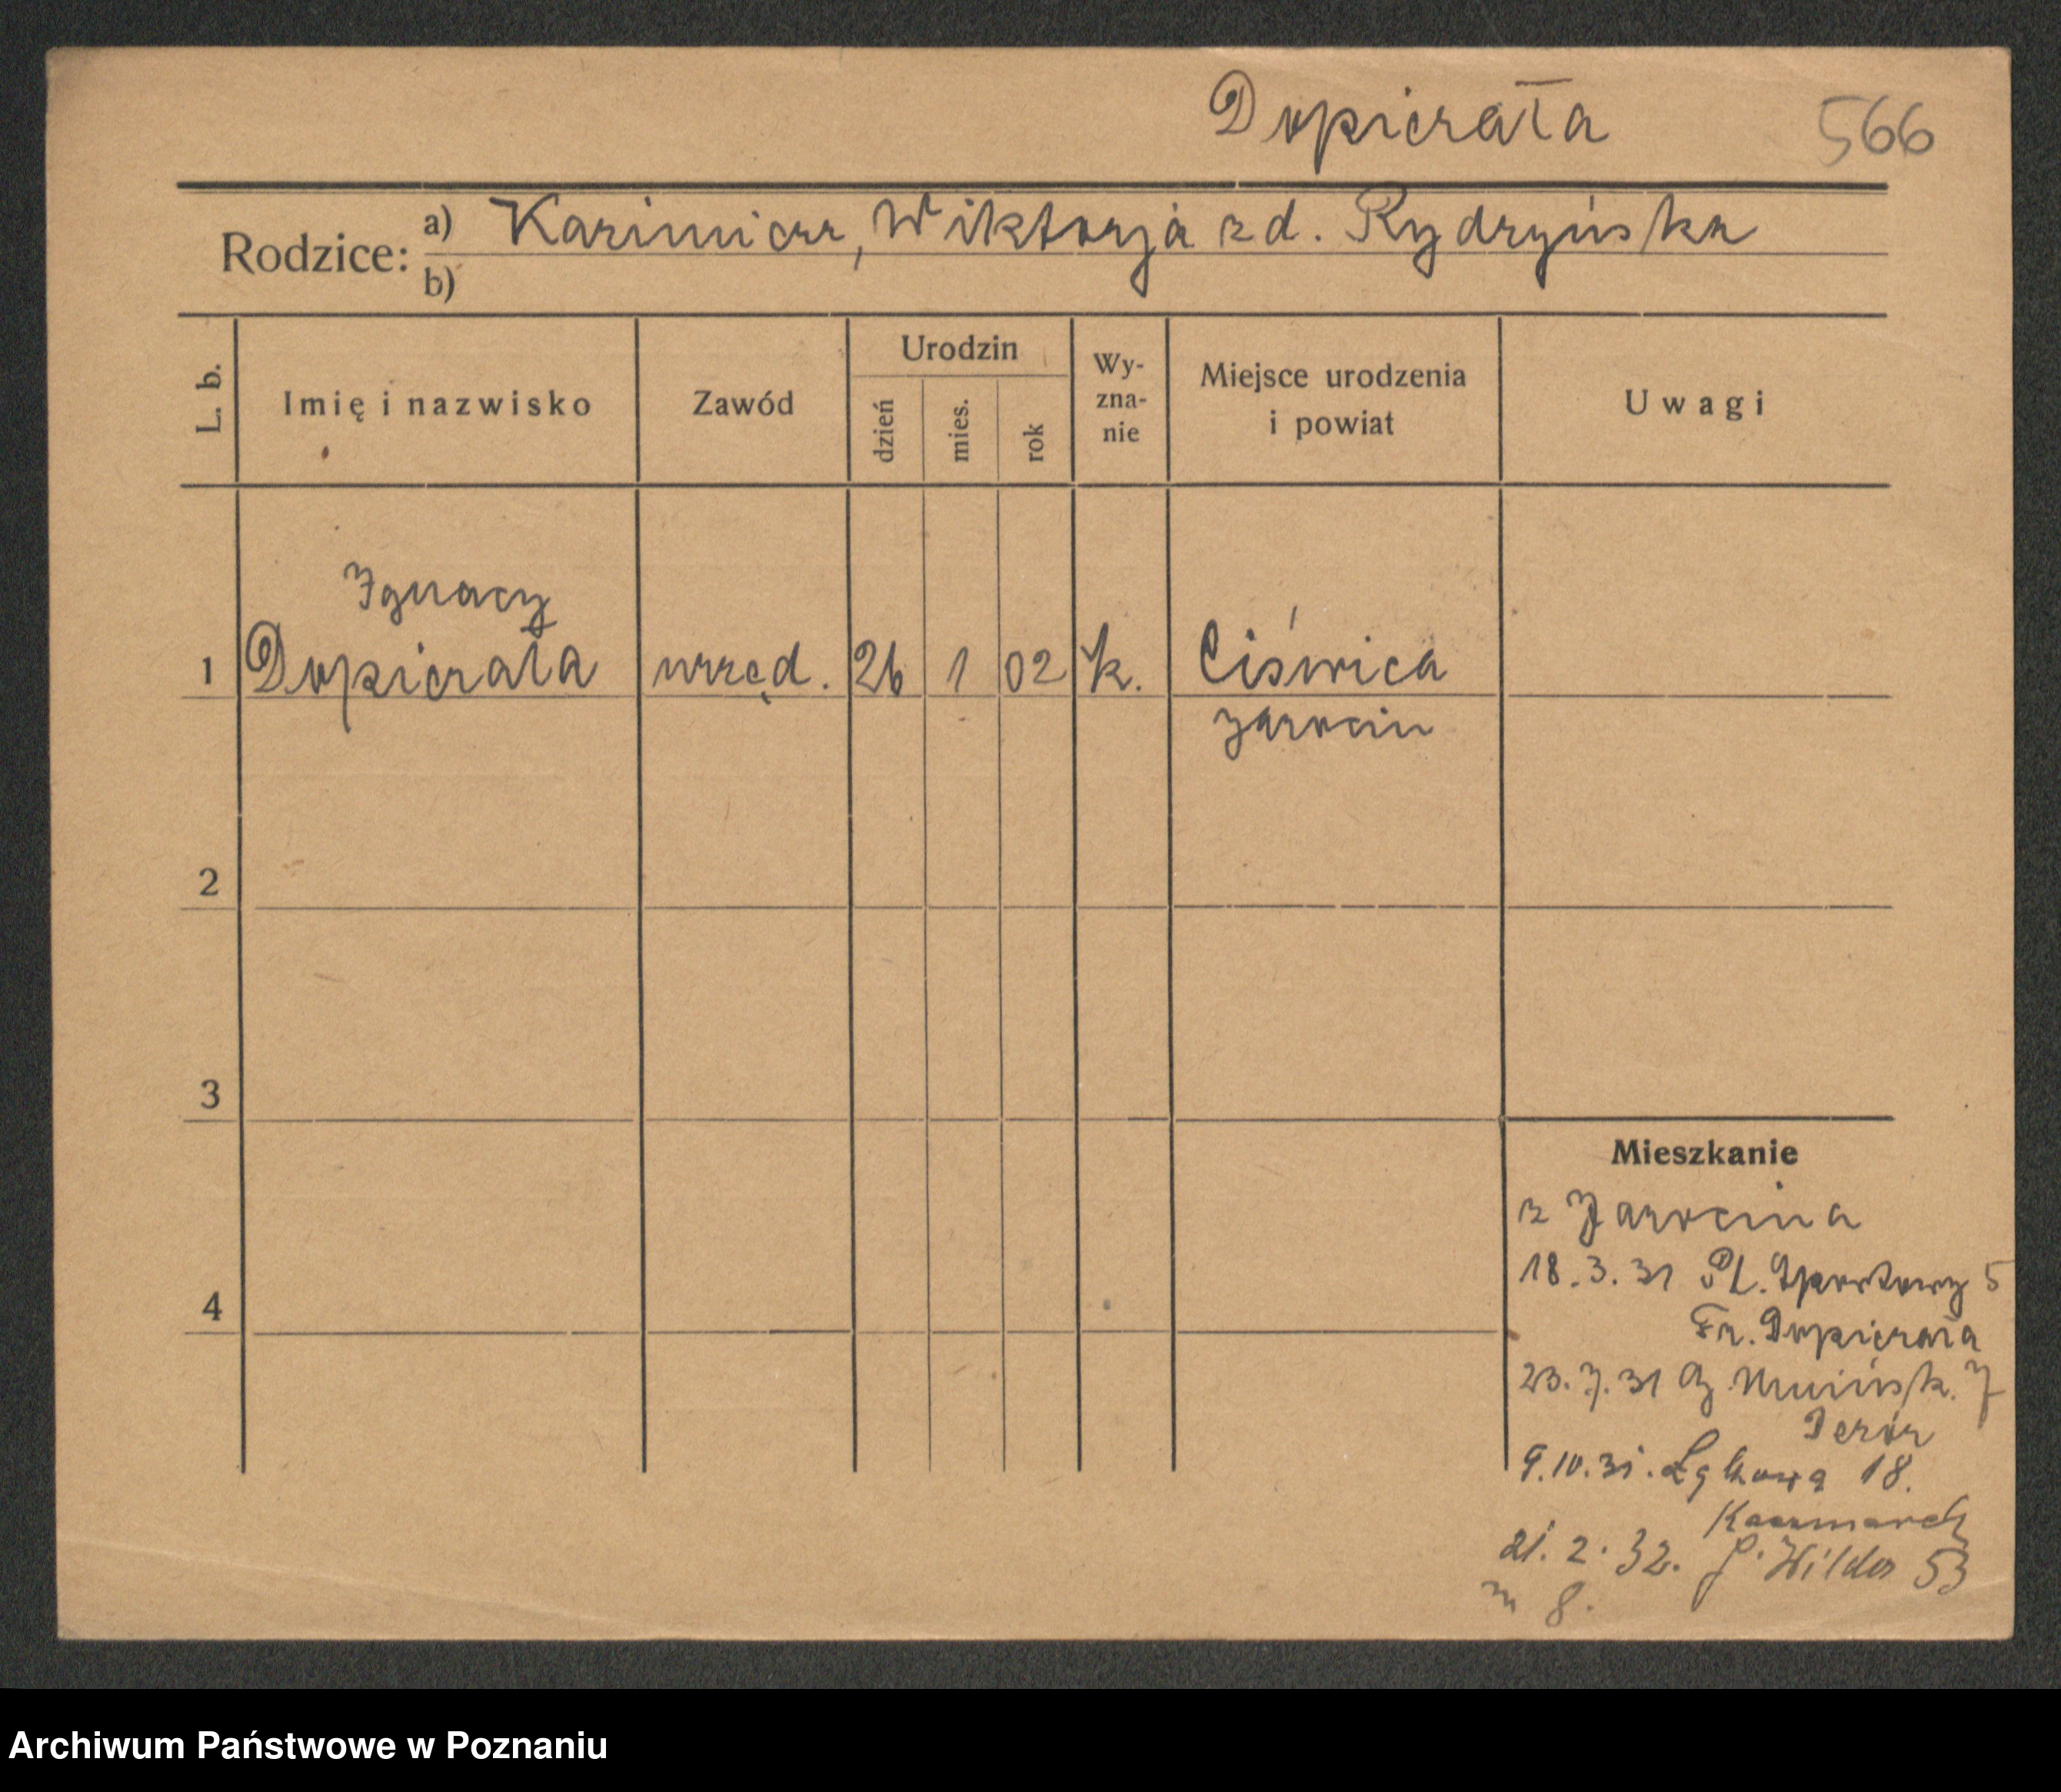 Dopierała 566
Rodzice: a) Kazimierz, Wiktorja zd. Rydzyńska
b)
L. b. Imię i nazwisko Zawód Urodzin dzień mies. rok Wy-zna-nie Miejsce urodzenia i powiat Uwagi
Ignacy
1 Dopierała urzęd. 26 1 02 k. Ciświca
Jarocin
2
3
Mieszkanie
z Jarocina
4
18.3.31 Pl. Sportowy 5
Fr. Dopierała
23.7.31 7
9.10.31. Łąkowa 18.
Kaczmarek
21.2.32. G. Wilda 53
m 8.
Archiwum Państwowe w Poznaniu